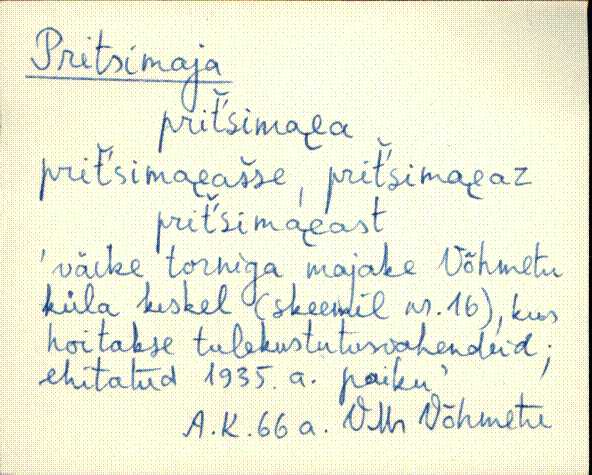 Pritsimaja
priťsimaea
priťsimaeašse, priťsimaeaz
priťsimaeast
'väike torniga majake Võhmetu
küla keskel (skeemil nr. 16), kus
hoitakse tulekustutusvahendeid;
ehitatud 1935. a. paiku'
A.K. 66 a. VMr Võhmetu